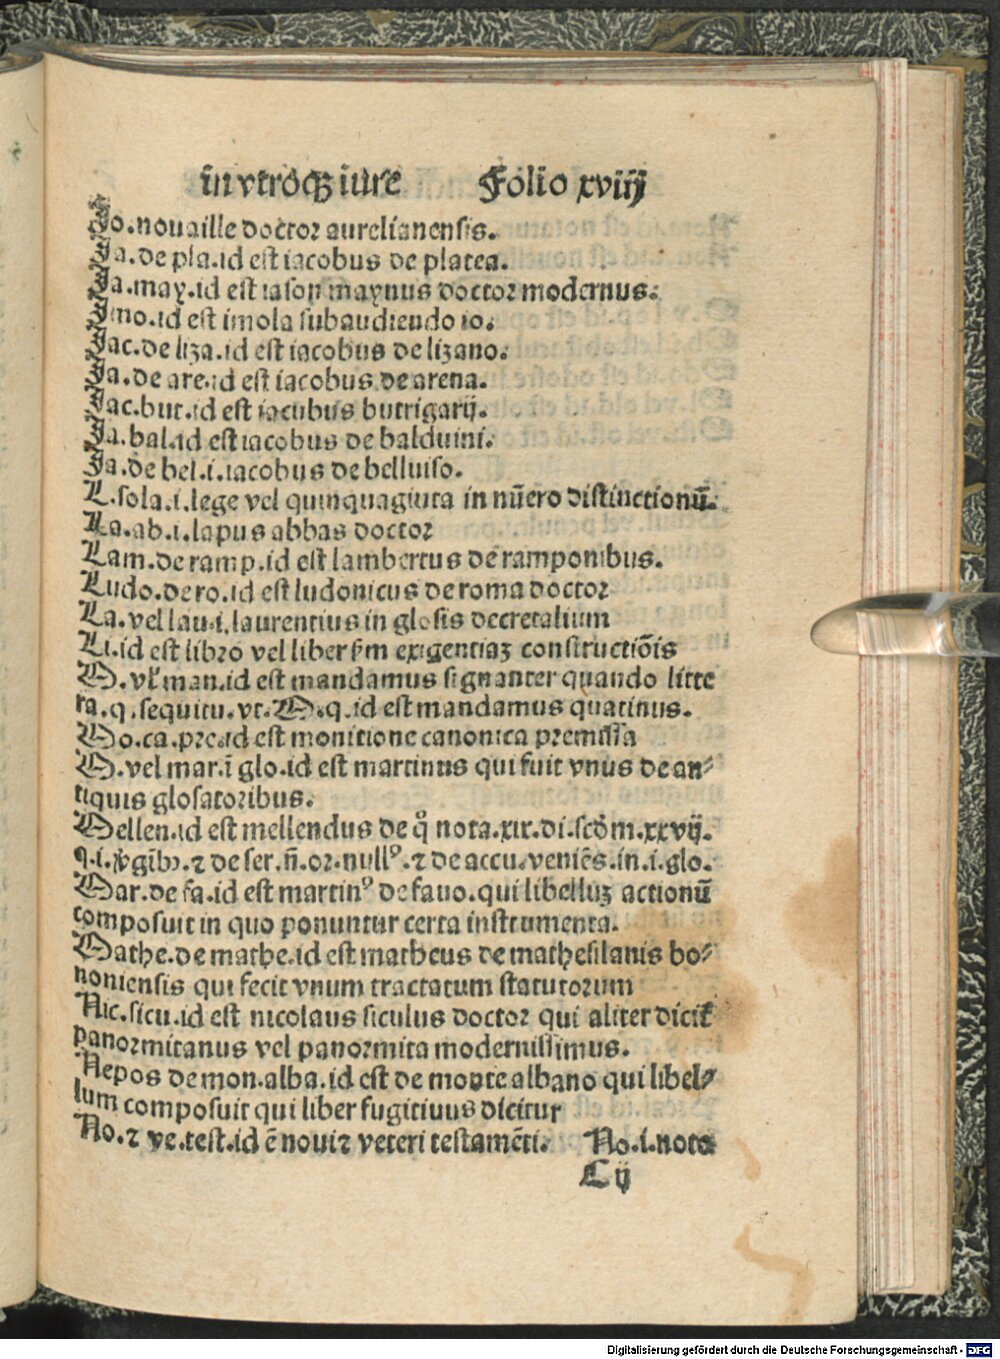 in vtroq̃ꝫ iure Folio xviij
Jo.nouaille doctor aurelianensis.
Ja.de pla.id est iacobus de platea.
Ja.may.id est iason maynus doctor modernus.
Imo.id est imola subaudiendo io.
Jac.de liza.id est iacobus de lizano.
Ja.de are.id est iacobus de arena.
Jac.but.id est iacubus butrigarij.
Ja.bal.id est iacobus de balduini.
Ja.de bel.i.iacobus de belluiso.
L.sola.i.lege vel quinquaginta in nũero distinctionũ.
La.ab.i.lapus abbas doctor
Lam.de ramp.id est lambertus de ramponibus.
Ludo.de ro.id est ludonicus de roma doctor
La.vel lau.i.laurentius in glosis decretalium
Li.id est libro vel liber s̃m exigentiaꝫ constructiõis
M.vl̛ man.id est mandamus signanter quando litte
ra.q.sequitu.vt.M.q.id est mandamus quatinus.
Mo.ca.pre.id est monitione canonica premissa
M.vel mar.ĩ glo.id est martinus qui fuit vnus de an⸗
tiquis glosatoribus.
Mellen.id est mellendus de q̊ nota.xix.di.scd̃m.xxvij.
q.i.v̛gĩbꝰ.⁊ de ser.ñ.or.nullꝰ.⁊ de accu.veniẽs.in.i.glo.
Mar.de fa.id est martinꝰ de fauo.qui libelluꝫ actionũ
composuit in quo ponuntur certa instrumenta.
Mathe.de mathe.id est matheus de mathesilanis bo⸗
noniensis qui fecit vnum tractatum statutorum
Nic.sicu.id est nicolaus siculus doctor qui aliter dicit̃
panormitanus vel panormita modernissimus.
Nepos de mon.alba.id est de monte albano qui libel⸗
lum composuit qui liber fugitiuus dicitur
No.⁊ ve.test.id ẽ noui⁊ veteri testamẽti. No.i.nota
C ij
Digitalisierung gefördert durch die Deutsche Forschungsgemeinschaft - DFG